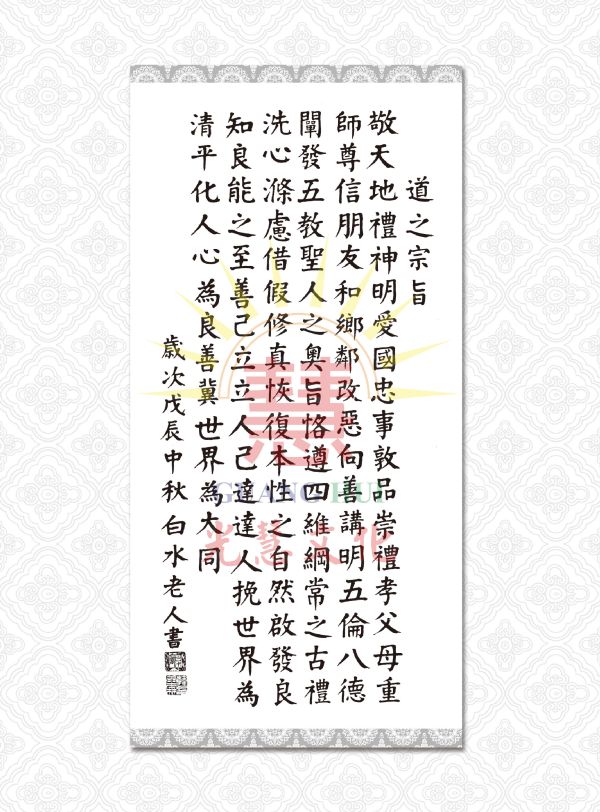 道之宗旨
敬天地禮神明愛國忠事敦品崇禮孝父母重
師尊信朋友和鄉鄰改惡向善講明五倫八德
闡發五教聖人之奧旨恪遵四維綱常之古禮
洗心滌慮借假修真恢復本性之自然啟發良
知良能之至善己立立人己達達人挽世界為
清平化人心為良善冀世界為大同
歲次戊辰中秋白水老人書
慧
GUANG HUI
光慧文化